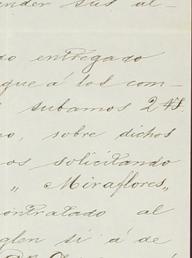 ender sus al-
do entregado
que á los com-
subamos 2 4s
no, sobre dichos
os solicitando
„ Miraflores „
contratado al
glen si á de